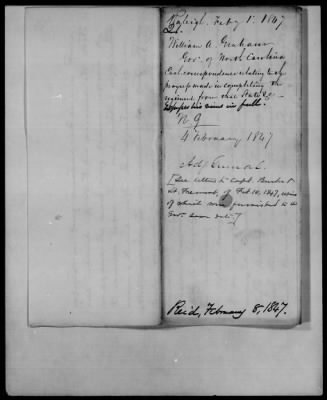 Raleigh. Feby 1. 1847
William A. Graham
Gov. of North Carolina
Encl. correspondence relating to the
progress made in completing the
regiment from that State, &c.
in full.
N 9
4 February 1847
Adj. General
[See letters to Capt. Burke &
Lt. of Feb. 10, 1847, copies
of which were furnished to the
Gov. same date.]
Rec'd, February 8, 1847.